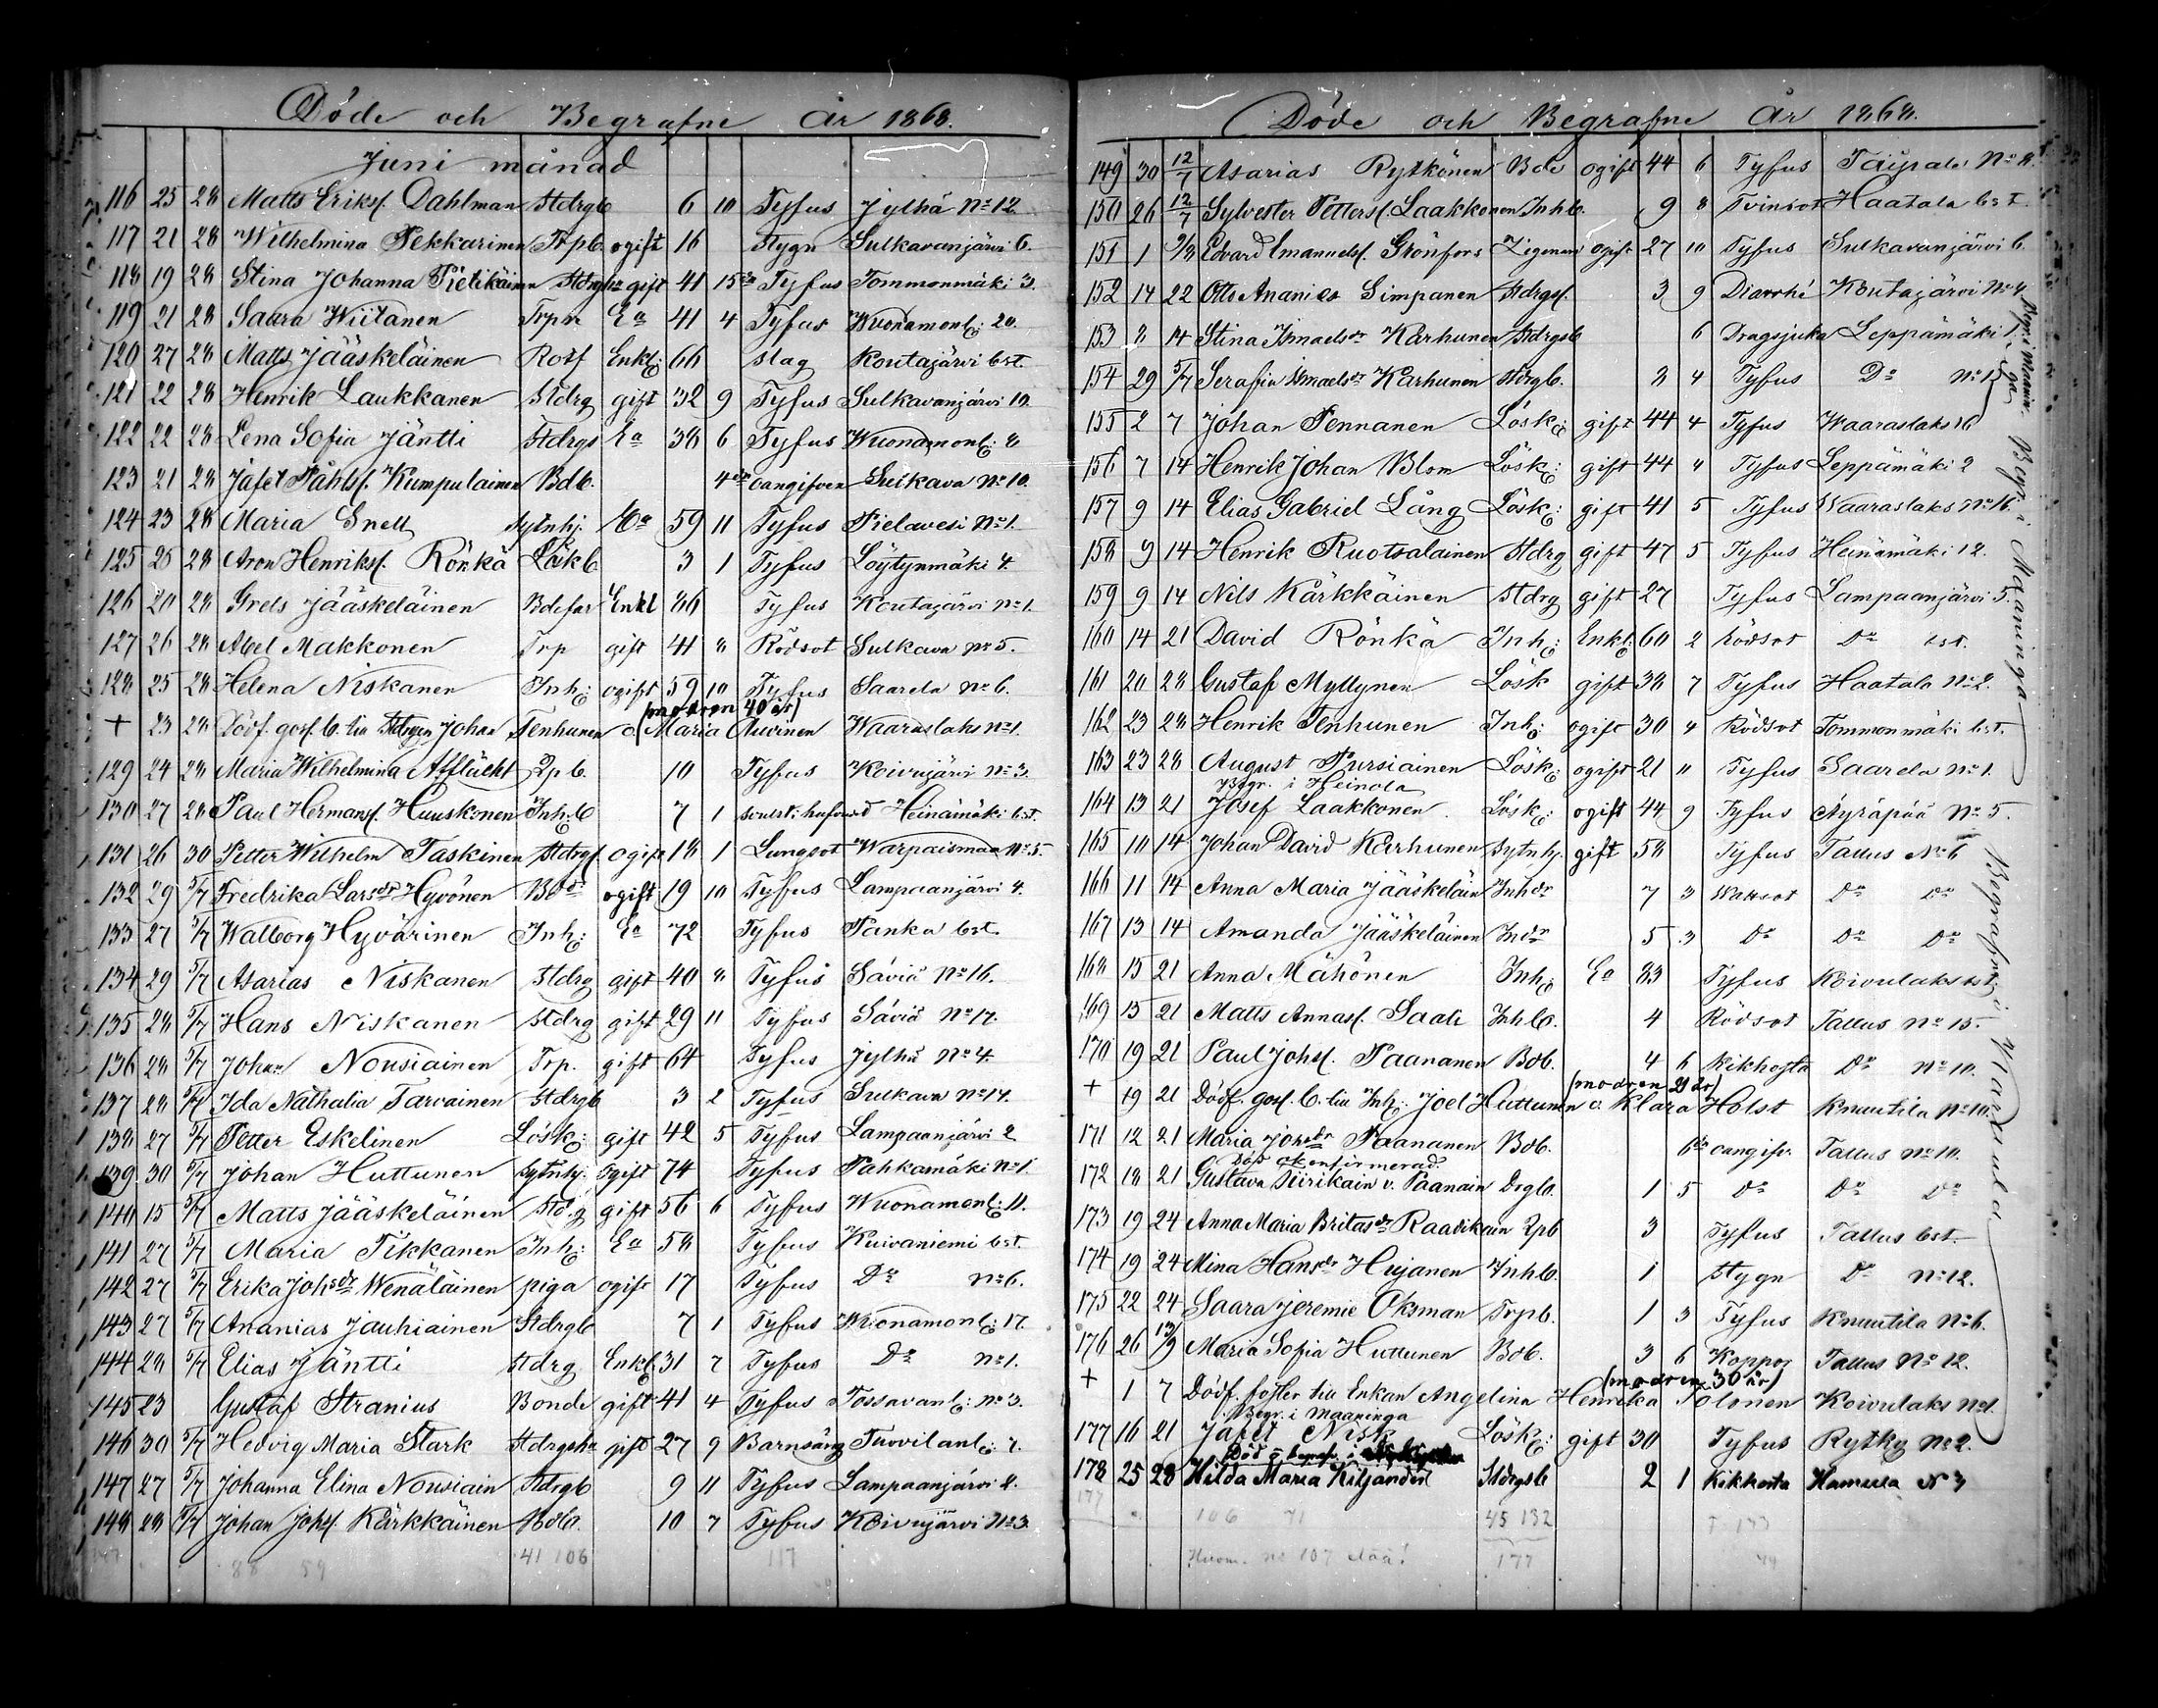 Döde och Begrafne År 1868.
Juni månad
116 25 28 Matts Eriksf. Dahlman Stdrgb 6 10 Tyfus Jylhä No 12
117 21 28 Wilhelmina Pekkarinen Trpb. ogift 16 Stygn Sulkavanjärvi 6.
118 19 28 Stina Johanna Pietikäinen gift 41 Tyfus Tommonmäki 3.
119 21 28 Saara Wiitanen Ea 41 4 Tyfus Wuonamonl: 20.
120 27 28 Matts Jääskeläinen Enkl: 66 slag Koutajärvi bst.
121 22 28 Henrik Laukkanen Stdrg gift 32 9 Tyfus Sulkavanjärvi 10.
122 22 28 Lena Sofia Jäntti Stdrgs Ea 38 6 Tyfus Wuonamonl: 8
123 21 28 Jafet Påhlsf. Kumpulainen Bdb. oangifven Sulkava No 10.
124 23 28 Maria Snell Sytnhj. Ea 59 11 Tyfus Pielavesi No 1.
125 25 28 Aron Henriksf. Rönkä 3 1 Tyfus Löytynmäki 4.
126 20 28 Grels Jääskeläinen Bdefar Enkl 86 Tyfus Koutajärvi No 1.
127 26 28 Abel Makkonen Trp gift 41 8 Rödsot Sulkava No 5.
128 25 28 Helena Niskanen Inh: ogift 59 10 Tyfus Saarela No 6.
(modren 40 år)
+ 23 28 Dödf. gosf. b. till Stdrgen Johan Tenhunen o. Maria Auvinen Waaraslaks No 1.
129 24 28 Maria Wilhelmina Afflücht 10 Tyfus Koivujärvi No 3.
130 27 28 Paul Hermansf. Huuskonen Inh: b 7 1 Heinämäki bst.
131 26 30 Petter Wilhelm Taskinen Stdrgf. ogift 18 1 Lungsot Warpaismaa No 5.
132 29 5/7 Fredrika Larsdr Hyvönen Bddr ogift 19 10 Tyfus Lampaanjärvi 4.
133 27 5/7 Walborg Hyvärinen Inh: Ea 72 Tyfus Panka bst.
134 29 5/7 Asarias Niskanen Stdrg gift 40 8 Tyfus Säviä No 16.
135 28 5/7 Hans Niskanen Stdrg gift 29 11 Tyfus Säviä No 17.
136 28 5/7 Johan Nousiainen Trp. gift 64 Tyfus Jylhä No 4.
137 28 5/7 Ida Nathalia Tarvainen Stdrgb 3 2 Tyfus Sulkava No 14.
138 27 5/7 Petter Eskelinen Lösk: gift 42 5 Tyfus Lampaanjärvi 2
139 30 5/7 Johan Huttunen Sytnhj. ogift 74 Tyfus Pahkamäki No 1.
140 15 5/7 Matts Jääskeläinen Stdrg gift 56 6 Tyfus Wuonamonl: 11.
141 27 5/7 Maria Tikkanen Inh: Ea 58 Tyfus Kuivaniemi bst.
142 27 5/7 Erika Johsdr Wenäläinen piga ogift 17 Tyfus Do No 6.
143 27 5/7 Ananias Jauhiainen Stdrgb 7 1 Tyfus Wuonamonl: 17.
144 28 5/7 Elias Jäntti Stdrg Enkl. 31 7 Tyfus Do No 1.
145 23 Gustaf Stranius Bonde gift 41 4 Tyfus Tossavanl: No 3.
146 30 5/7 Hedvig Maria Stark Stdrgshu gift 27 9 Barnsäng Tuovilanl: 7.
147 27 5/7 Johanna Elina Nousiain Stdrgb 9 11 Tyfus Lampaanjärvi 2.
148 28 5/7 Johan Johsf. Kärkkäinen Bdb. 10 7 Tyfus Koivujärvi No 3.
88 59 41 106 117
Döde och Begrafne År 1868.
149 30 12/7 Asarias Rytkönen Bde ogift 44 6 Tyfus Taipale
150 26 12/7 Sylvester Pettersf. Laakkonen Inhb. 9 8 Tvinsot Haatala bst.
151 1 Edvard Emanuelsf. Grönfors Zigenare ogift 27 10 Tyfus Sulkavanjärvi 6.
152 14 22 Otto Ananias Simpanen Stdrgsf. 3 9 Diarrhé Koutajärvi No 4
153 8 14 Stina Ismaelsdr Karhunen Stdrgsb 6 Dragsjuka Leppämäki 1.
154 29 5/7 Serafia Ismaelsdr Karhunen Stdrgb. 3 4 Tyfus Do No 1
155 2 7 Johan Pennanen Lösk: gift 44 4 Tyfus Waaraslaks 16
156 7 14 Henrik Johan Blom Lösk: gift 44 Tyfus Leppämäki 2
157 9 14 Elias Gabriel Lång Lösk: gift 41 5 Tyfus Waaraslaks No 16.
158 9 14 Henrik Ruotsalainen Stdrg gift 47 5 Tyfus Heinämäki 12.
159 9 14 Nils Kärkkäinen Stdrg gift 27 Tyfus Lampaanjärvi 5.
160 14 21 David Rönkä Inh: Enkl: 60 2 Rödsot Do bst.
161 20 28 Gustaf Myllynen Lösk gift 38 7 Tyfus Haatala No 2.
162 23 28 Henrik Tenhunen Inh: ogift 30 4 Rödsot Tommonmäki bst.
163 23 28 August Pursiainen Lösk: ogift 21 11 Tyfus Saarela No 1.
Begr. i Heinola
164 13 21 Josef Laakkonen Lösk: ogift 44 9 Tyfus Äyräpää No 5.
165 10 14 Johan David Karhunen Sytnhj. gift 58 Tyfus Tallus No 6
166 11 14 Anna Maria Jääskeläin Inhdr 7 3 Wattsot Do Do
167 13 14 Amanda Jääskeläinen Indr 5 3 Do Do Do
168 15 21 Anna Mähönen Inh: Ea 83 Tyfus Koivulaks bst.
169 15 21 Matts Annasf. Saali Inhb. 4 Rödsot Tallus No 15.
170 19 21 Paul Johsf. Paananen Bdb. 4 6 Kikhosta Do No 10.
(modren 21 år)
+ 19 21 Dödf. gosf. b. till Inh: Joel Huttunen o. Klara Holst Knuutila No 10.
171 12 21 Maria Johsdr Paananen Bdb. oangifv. Tallus No 10.
Död okonfirmerad.
172 18 21 Gustava Siirikain v. Paanain Drgb. 1 5 Do Do Do
173 19 24 Anna Maria Britasdr Raatikain 3 Tyfus Tallus bst.
174 19 24 Mina Hansdr Hujanen Inhb. 1 Stygn Do No 12.
175 22 24 Saara Jeremie Oksman Trpb. 1 3 Tyfus Knuutila No 6.
176 26 13/9 Maria Sofia Huttunen Bdb. 3 6 Koppor Tallus No 12.
(modren 30 år)
+ 1 7 Dödf. till Enkan Angelina Henrika Tolonen Koivulaks No 1.
Begr. i Maaninga
177 16 21 Jafet Nisk Lösk: gift 30 Tyfus Rytky No 2.
178 25 28 Hilda Maria Kiljander Stdrgsb 2 1 Kikhosta Hamula N 3
177 106 71 45 132
Huom. no 107 177
Begr. i Maaninga
Begr. i Maaninga
Begrafne i